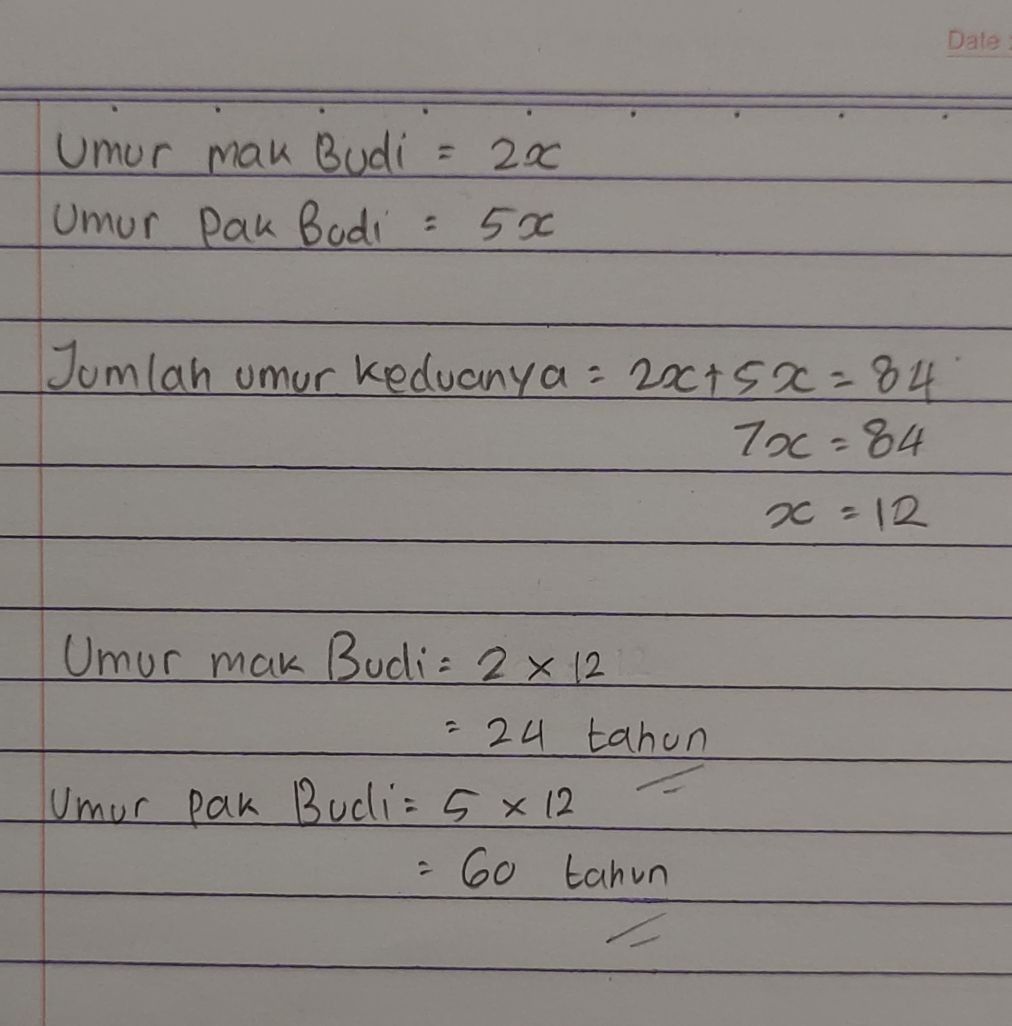 Date :
Umur mak Budi = 2x
Umur Pak Budi = 5x
Jumlah umur keduanya = 2x + 5x = 84
7x = 84
x = 12
Umur mak Budi = 2 x 12
= 24 tahun
Umur pak Budi = 5 x 12
= 60 tahun